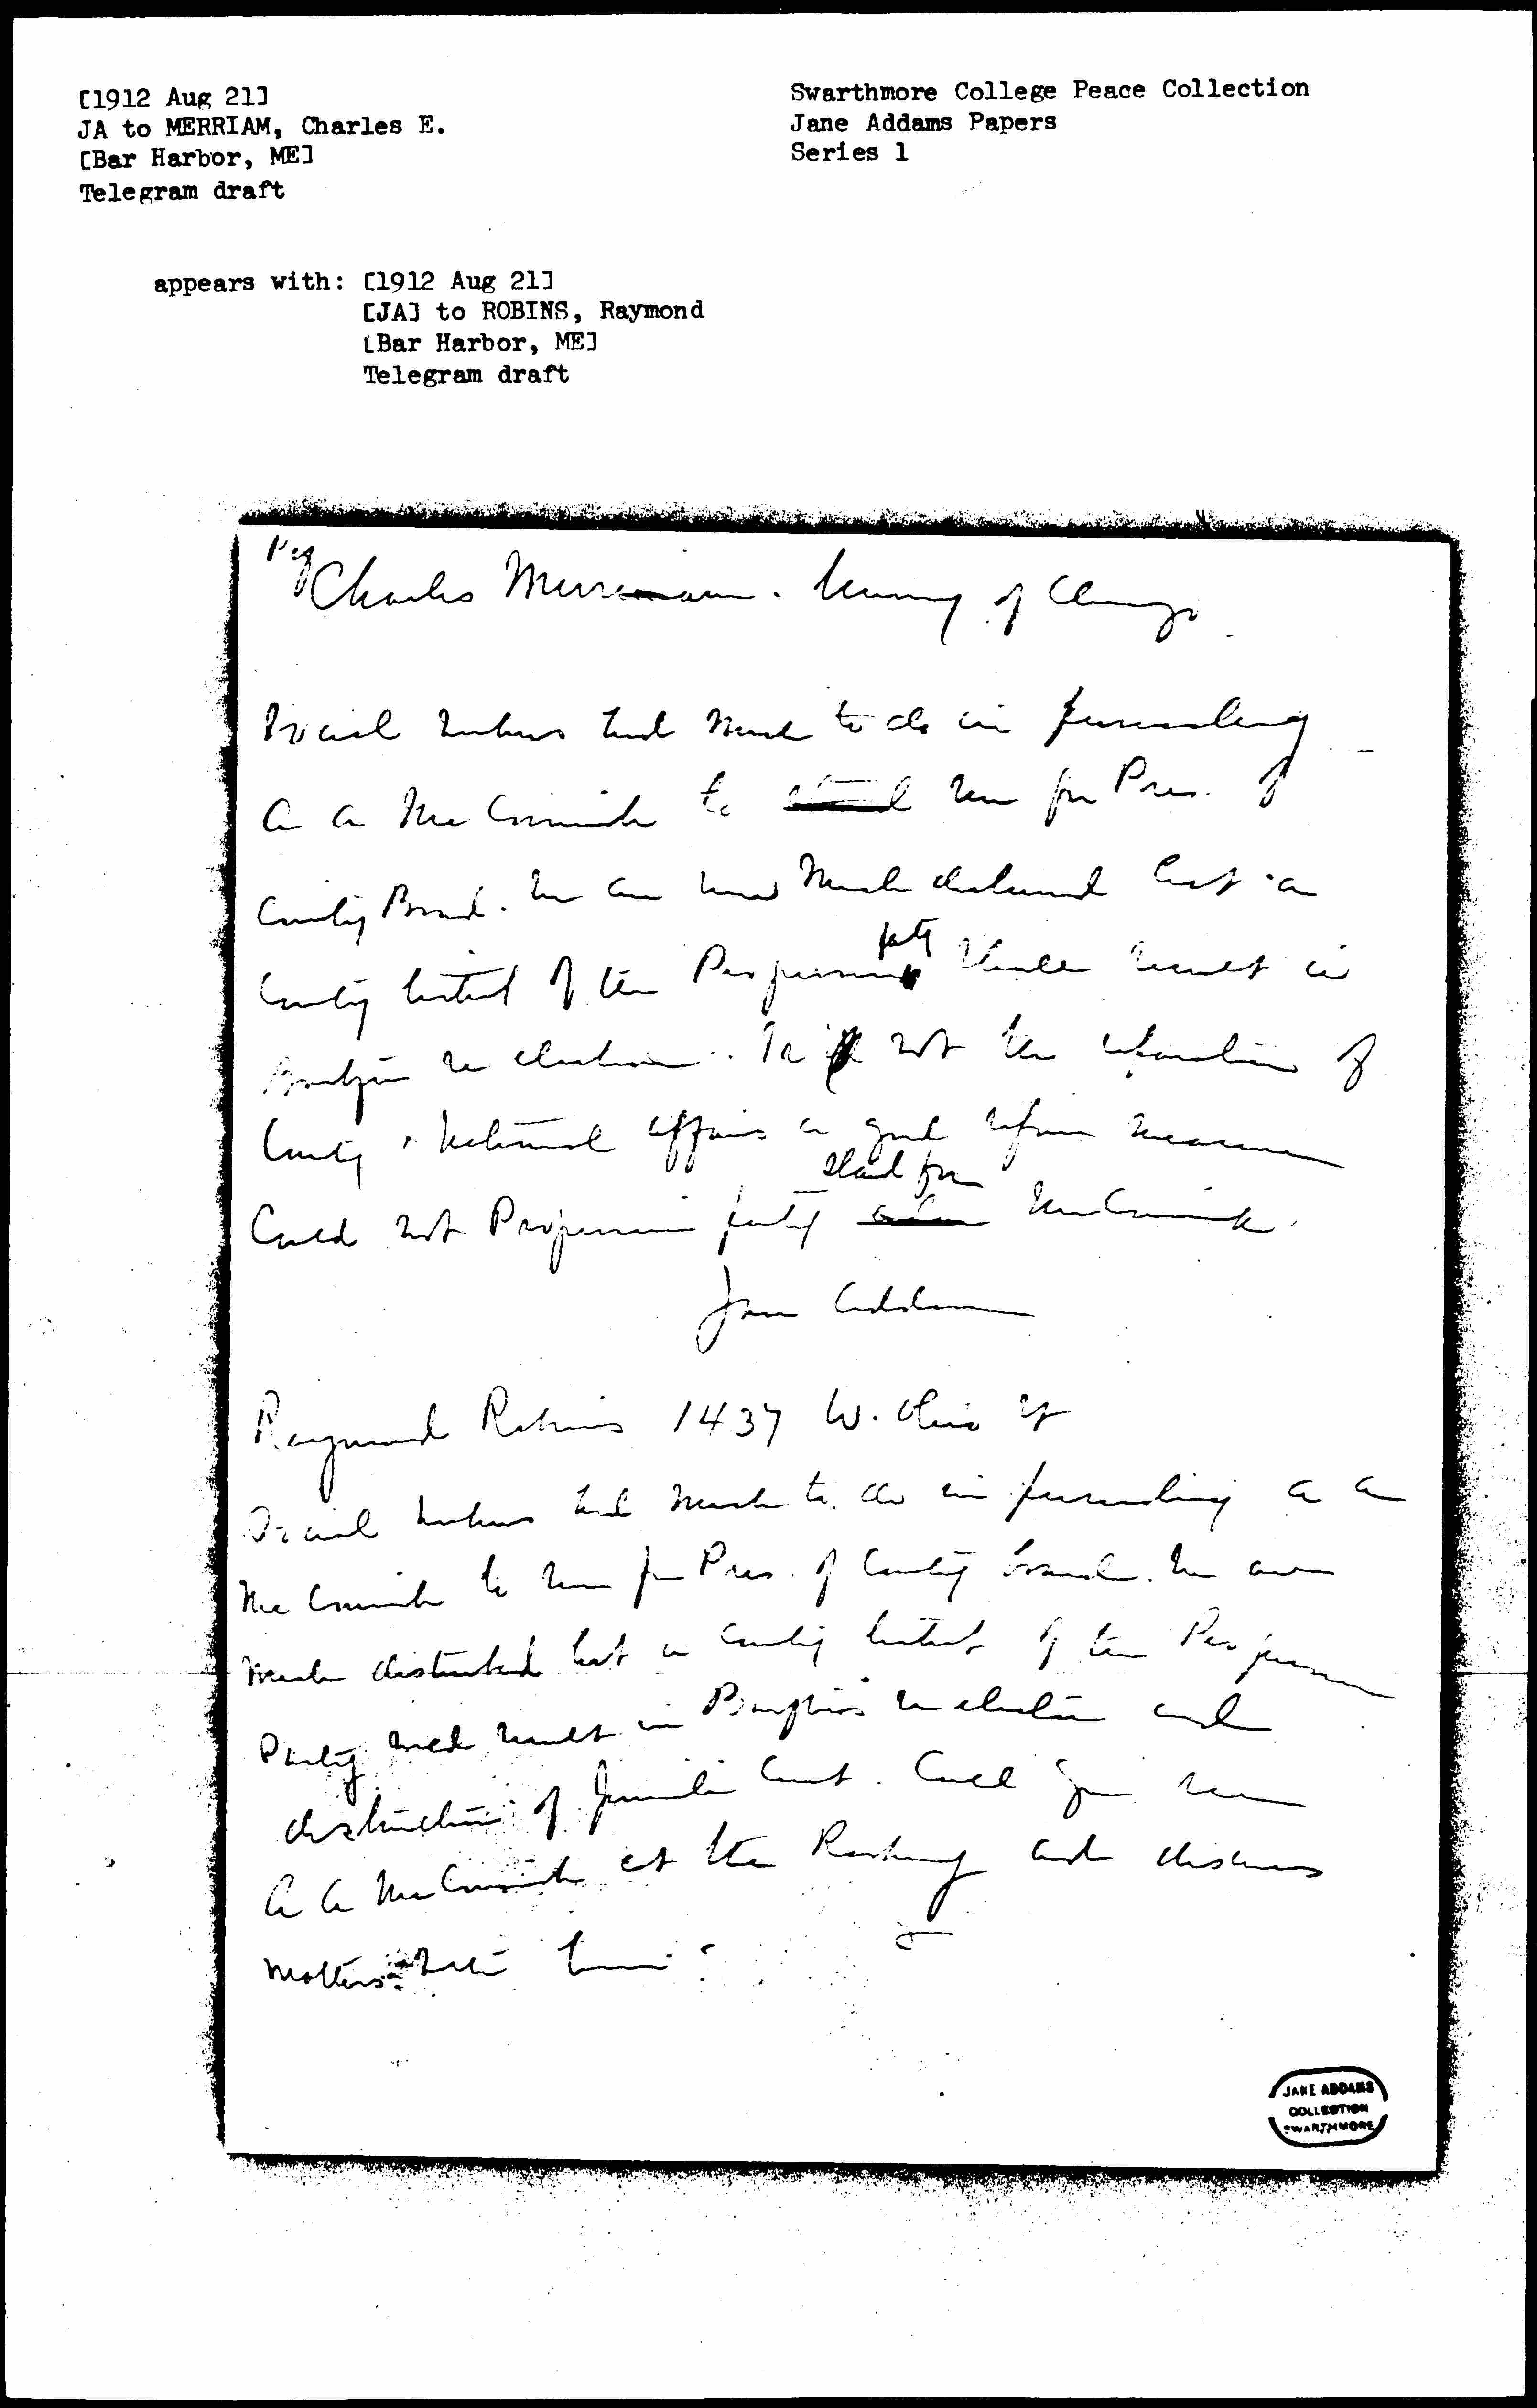 [1912 Aug 21]
JA to MERRIAM, Charles E.
[Bar Harbor, ME]
Telegram draft
Swarthmore College Peace Collection
Jane Addams Papers
Series 1
appears with: [1912 Aug 21]
[JA] to ROBINS, Raymond
[Bar Harbor, ME]
Telegram draft
Charles Merriam. of Chicago
Social workers had much to do in persuading
A A McCormick to run for Pres. of
County Board. We are now much disturbed lest a
County ticket of the Progressive party should result in
re election. Is not the separation of
County & National affairs a good reform measure
Could not Progressive party stand for McCormick.
Jane Addams
Raymond Robins 1437 W. Ohio St
Social workers had much to do in persuading A A
McCormick to run for Pres. of County Board. We are
much disturbed lest a County ticket of the Progressive
Party would result in re election and
destruction of Juvenile Court. Could you see
A A McCormick at the and discuss
matters with him
JANE ADDAMS
COLLECTION
SWARTHMORE